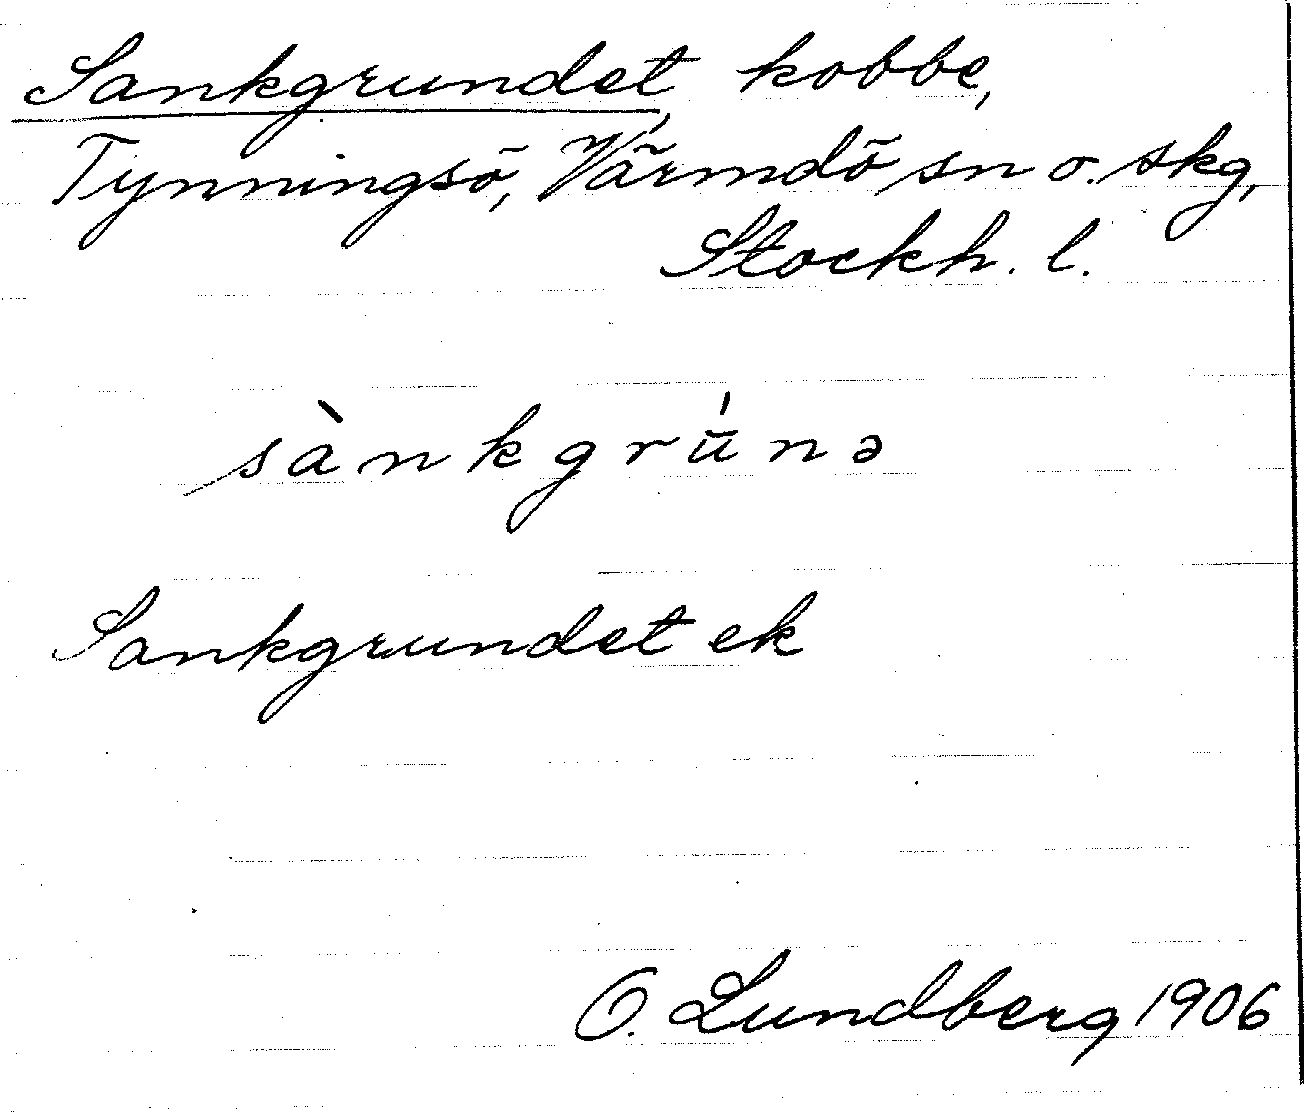 Sankgrundet, kobbe,
Tynningsö, Värmdö sn o. skg,
Stockh. l.
sànkgrúnə
Sankgrundet ek
O. Lundberg 1906